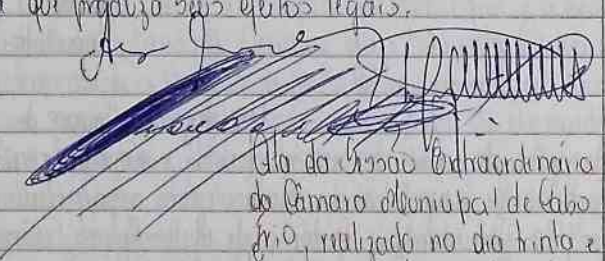 que produza seus efeitos legais.
Ata da Sessão Extraordinária
da Câmara Municipal de Cabo
Frio, realizada no dia trinta e